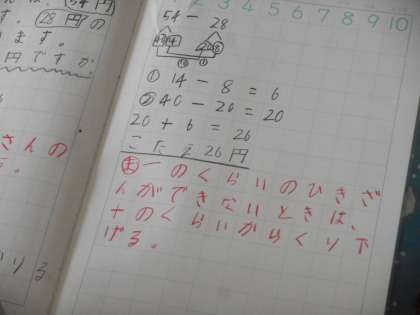 2 3 4 5 6 7 8 9 10
54円
28円の
ます。
円ですか
さんの
54 - 28
① 14 - 8 = 6
② 40 - 20 = 20
20 + 6 = 26
こたえ 26円
ま 一のくらいのひきざ
んができないときは、
十のくらいからくりさ
げる。